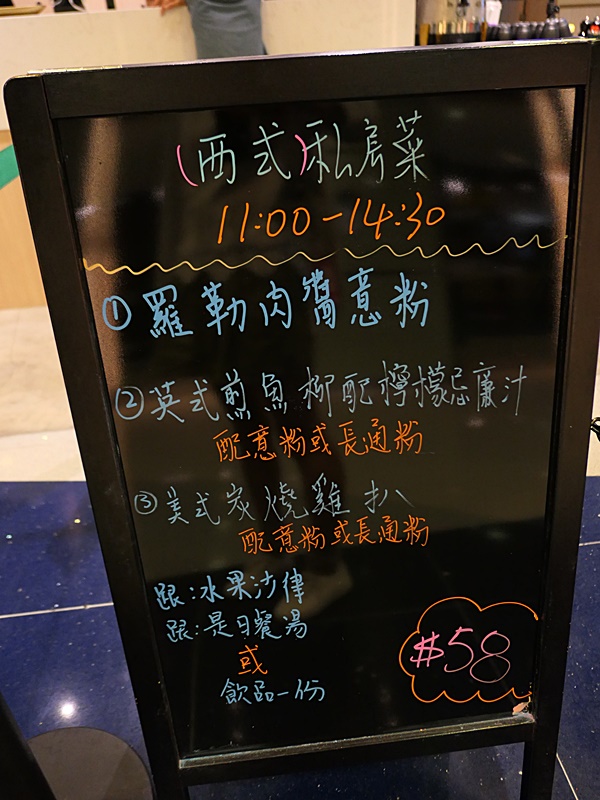 (西式)私房菜
11:00-14:30
① 羅勒肉醬意粉
② 英式煎魚柳配檸檬忌廉汁
配意粉或長通粉
③ 美式炭燒雞扒
配意粉或長通粉
跟:水果沙律
跟:是日餐湯
或
飲品一份
$58